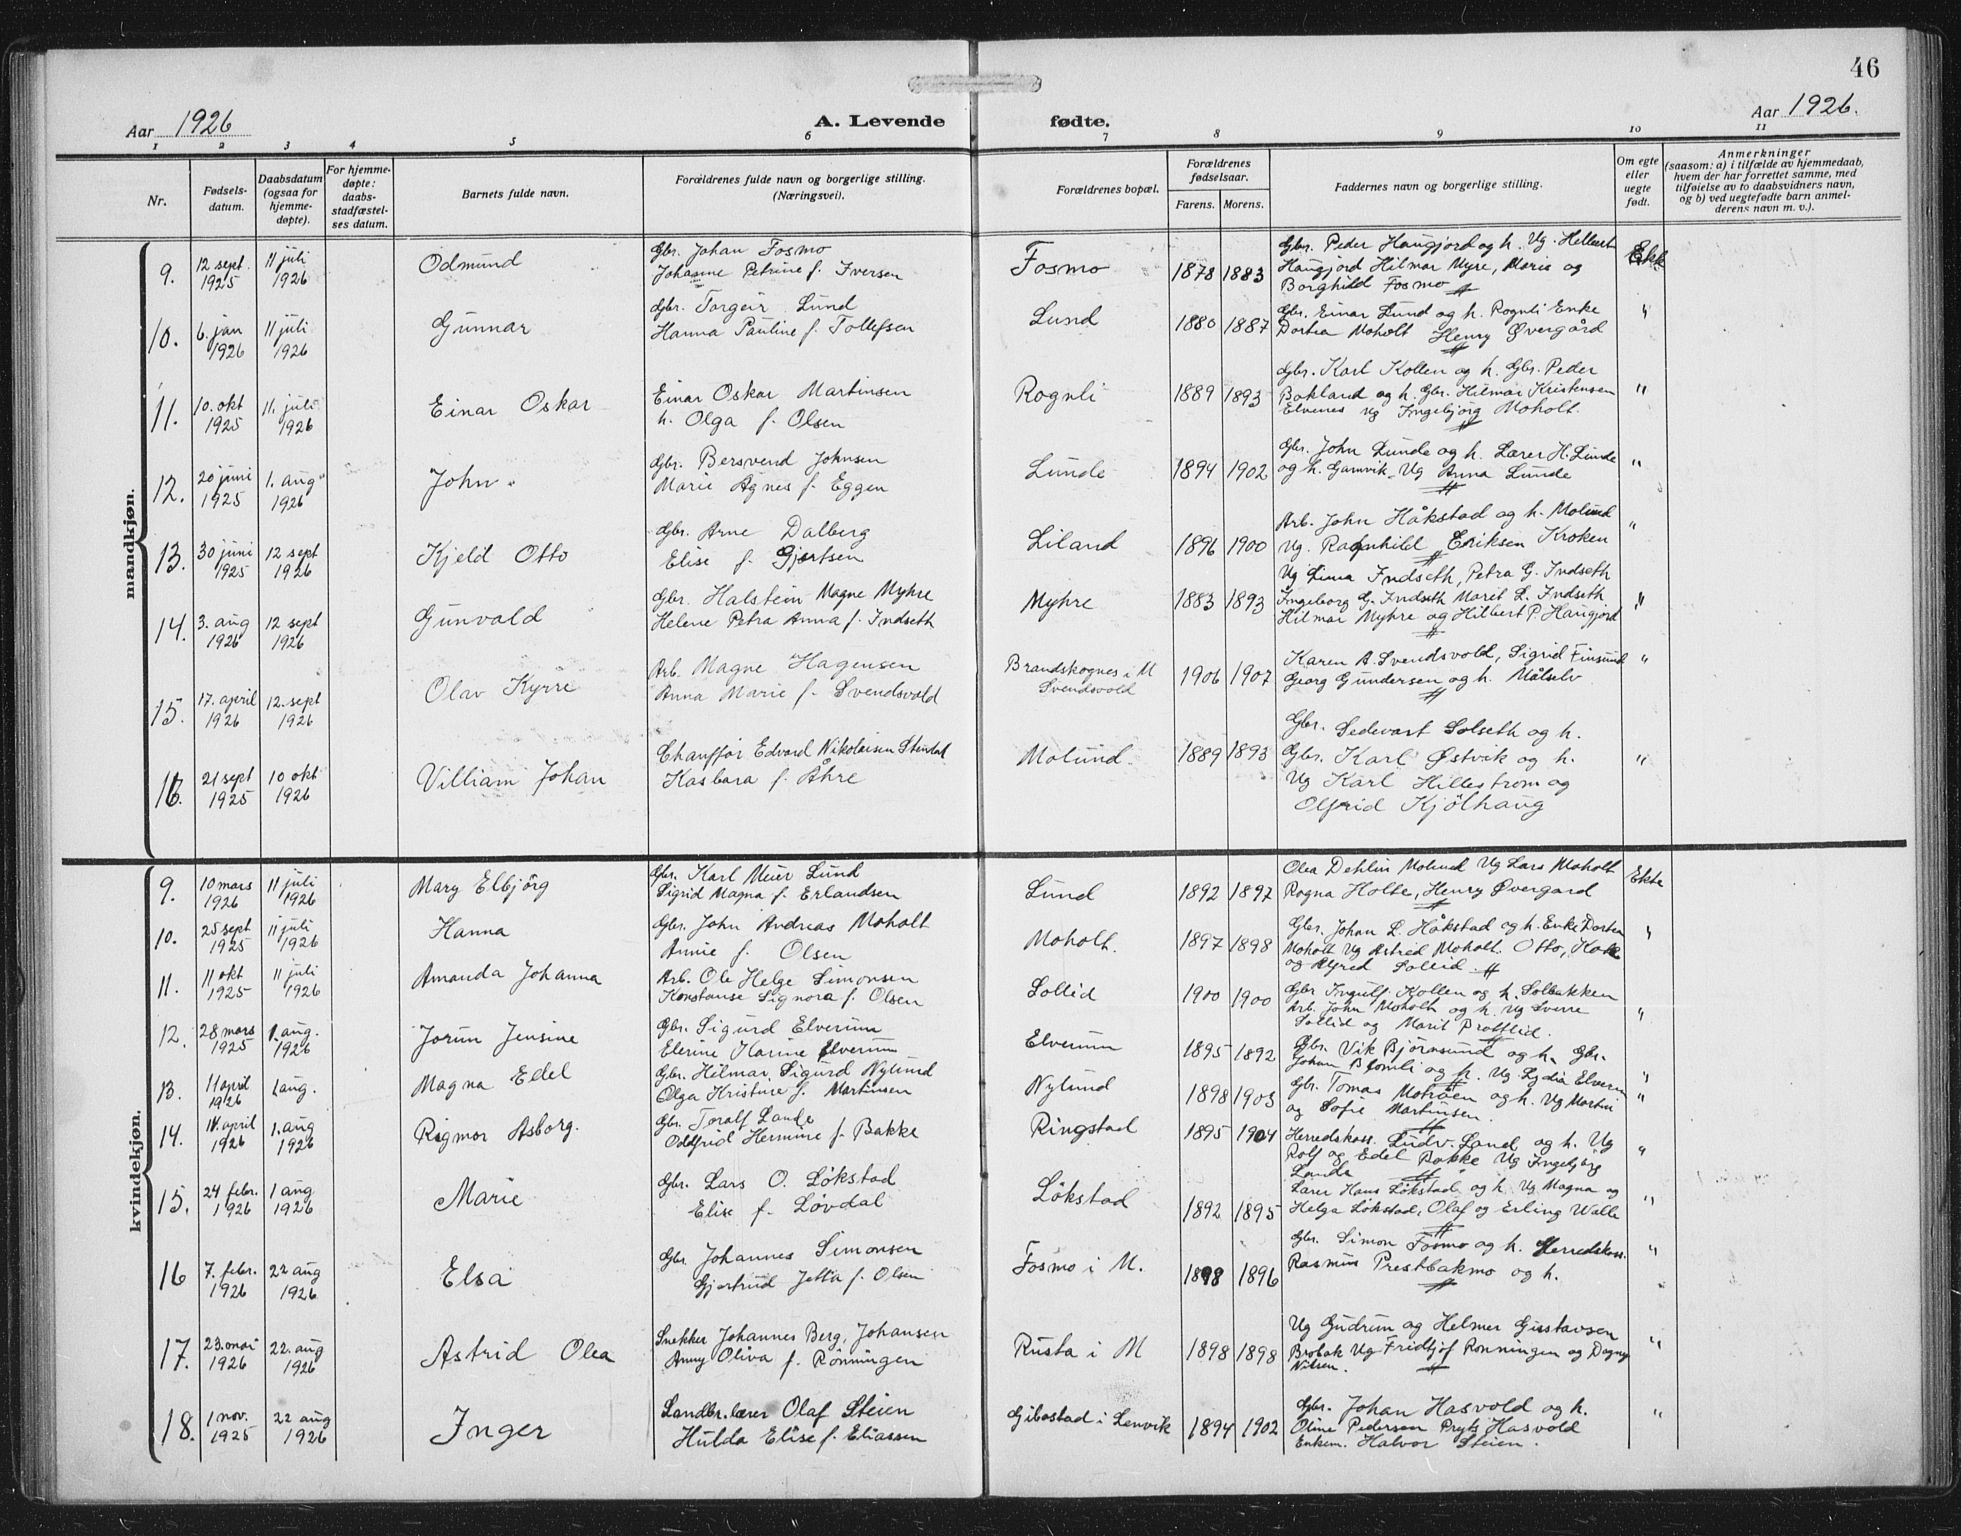 46
Aar 1926
A. Levende fødte.
Aar 1926.
1 2 3 4 5 6 7 8 9 10 11
Nr.
Fødsels-
datum.
Daabsdatum
(ogsaa for
hjemme-
døpte).
For hjemme-
døpte:
daabs-
stadfæstel-
ses datum.
Barnets fulde navn.
Forældrenes fulde navn og borgerlige stilling.
(Næringsvei).
Forældrenes bopæl.
Forældrenes
fødselsaar.
Farens. Morens.
Faddernes navn og borgerlige stilling.
Om egte
eller
uegte
født.
Anmerkninger
(saasom: a) i tilfælde av hjemmedaab,
hvem der har forrettet samme, med
tilføielse av to daabsvidners navn,
og b) ved uegtefødte barn anmel-
derens navn m. v.).
mandkjøn.
9. 12 sept. 1925 11 juli 1926 Odmund
Gbr. Johan Fosmo
Johanne Petrine f. Iversen
Fosmo 1878 1883
Gbr. Peder Haugjord og h. Ug. Helbert
Haugjord Hilmar Myre, Maria og
Borghild Fosmo
Ekte
10. 6. jan 1926 11 juli 1926 Gunnar
Gbr. Torgeir Lund
Hanna Pauline f. Tollefsen
Lund 1880 1887
Gbr. Einar Lund og h. Rognli Enke
Dortea Moholt Henry Øvergård
"
11. 10. okt 1925 11. juli 1926 Einar Oskar
Einar Oskar Martinsen
h. Olga f. Olsen
Rognli 1889 1893
Gbr. Karl Kollen og h. Gbr. Peder
Bakland og h. Gbr. Hilmar Kristensen
Elvenes Ug Ingebjørg Moholt.
"
12. 20 juni 1925 1. aug 1926 John
Gbr. Bersvend Johnsen
Marie Agnes f. Eggen
Lunde 1894 1902
Gbr. John Lunde og h. Lærer H. Lunde
og h. Gamvik. Ug Anna Lunde
"
13. 30 juni 1925 12 sept 1926 Kjeld Otto
Gbr. Arne Dalberg
Elise f. Gjertsen
Liland 1896 1900
Arb. John Håkstad og h. Molund
Ug. Ragnhild Eriksen Kroken
"
14. 3. aug 1926 12 sept 1926 Gunvald
Gbr. Halstein Magne Myhre
Helene Petra Anna f. Indseth
Myhre 1883 1893
Ug Lina Indseth, Petra G. Indseth
Ingeborg G. Indseth Marit L. Indseth
Hilmar Myhre og Hilbert P. Haugjord
"
15. 17. april 1926 12. sept 1926 Olav Kyrre
Arb. Magne Hagensen
Anna Marie f. Svendsvold
Brandskognes i M
Svendsvold 1906 1907
Karen A. Svendsvold, Sigrid Finsund
Georg Gundersen og h. Målselv
"
16. 21 sept 1925 10 okt 1926 Villiam Johan
Chauffør Edvard Nikolaisen Stendal
Kasbara f. Åhre
Molund. 1889 1893
Gbr. Sedevart Solseth og h.
Gbr. Karl Østvik og h.
Ug Karl Hillestrom og
Olfrid Kjölhaug
"
kvindekjøn.
9. 10 mars 1926 11 juli 1926 Mary Elbjörg
Gbr. Karl Meier Lund
Sigrid Magna f. Erlandsen
Lund 1892 1897
Olea Dehlin Molund Ug Lars Moholt
Rogna Holte, Henry Øvergård
Ekte
10. 25 sept 1925 11 juli 1926 Hanna
Gbr. John Andreas Moholt
Annie f. Olsen
Moholt. 1897 1898
Gbr. Johan L. Håkstad og h. Enke Dortea
Moholt Ug Astrid Moholt. Otto,
og Alfred Sollid.
"
11. 11 okt 1925 11 juli 1926 Amanda Johanna
Arb. Ole Helge Simonsen
Konstanse Signora f. Olsen
Sollid 1900 1900
Gbr Ingulf Kollen og h. Solbakken
Arb. John Moholt og h. Ug Sverre
Sollid og Marit
"
12. 28 mars 1925 1. aug. 1926 Jorun Jensine
Gbr. Sigurd Elverum
Elerine Karine Elverum
Elverum 1895 1892
Gbr. Vik Bjørnsund og h. Gbr.
Johan Blomli og h. Ug Lydia Elverum
"
13. 11 april 1926 1 aug. Magna Edel
Gbr. Hilmar Sigurd Nylund
Olga Kristine f. Martinsen
Nylund 1898 1903
Gbr. Tomas Motrøen og h. Ug Martin
og Sofie Martinsen.
"
14. 14. april 1926 1. aug 1926 Rigmor Asborg.
Gbr. Toralf Lande
Oddfrid Hermine f. Bakke
Ringstad 1895 1904
Herredskass. Ludv. Land og h. Ug
Rolf og Edel Bakke Ug Ingebjörg
Lande
"
15. 24 febr. 1926 1 aug 1926 Marie
Gbr. Lars O. Løkstad
Elise f. Løvdal
Løkstad 1892 1895
Lærer Hans Løkstad og h Ug Magna og
Helga Løkstad, Olaf og Erling Walle
"
16 7. febr. 1926 22 aug 1926 Elsa
Gbr Johannes Simonsen
Gjertrud Jetta f. Olsen
Fosmo i M. 1898 1896
Gbr. Simon Fosmo og h. Herredskass.
Rasmus Prestbakmo og h.
"
17. 23. mai 1926 22. aug 1926 Astrid Olea
Snekker Johannes Berg. Johansen
Anny Oliva f. Rønningen
Rusta i M 1898 1898
Ug Gudrun og Helmer Gustavsen
Brobak Ug Fridtjof Rønningen og Dagny
Nilsen.
"
18. 1 nov. 1925 22 aug 1926 Inger
Landbr. lærer Olaf Steien
Hulda Elise f. Eliassen
Gibostad i Lenvik 1894 1902
Gbr. Johan Hasvold og h.
Oline Pedersen Pryts Hasvold
Enkem. Halvor Steien.
"